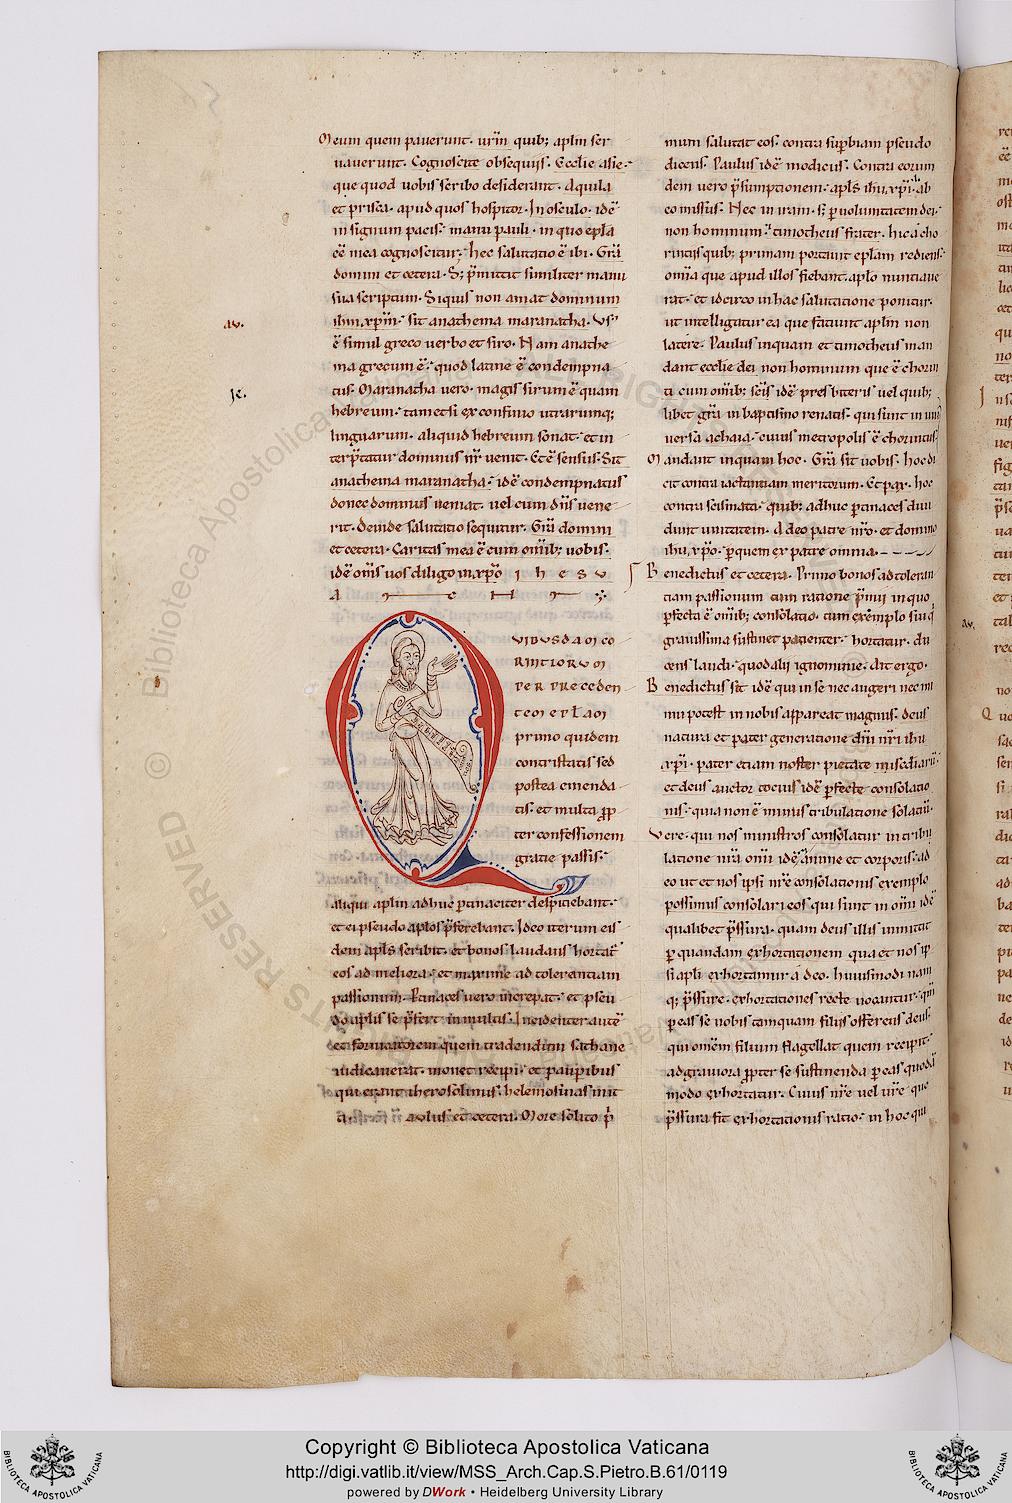 Meum quem pauerunt. urm̃ quib; aplm̃ ser
uauerunt. Cognoscite obsequiis. Ecclie asie.
que quod uobis scribo desiderant. Aquila
et prisca. apud quos hospitor. In osculo. idẽ
in signum pacis. manu pauli. in quo epl̃a
eẽ mea cognoscitur. hec salutatio ẽ ibi. Grã
domini et cetera. S; p̃mittit similiter manu
sua scriptum. Siquis non amat dominum
ihm̃ xp̃m. sit anathema maranatha. Vs
av.
ẽ simul greco uerbo et siro. Nam anathe
ma grecum ẽ. quod latine ẽ condempna
tus. Maranatha uero. magis sirum ẽ quam
Je.
hebreum. tametsi ex confinio utrarumq;
linguarum. aliquid hebreum sonat. et in
terp̃tatur dominus nr̃ uenit. Et ẽ sensus. Sit
anathema maranatha. idẽ condempnatus
donec dominus ueniat. uel cum dñs uene
rit. Deinde salutatio sequitur. Grã domini
et cetera. Caritas mea ẽ cum om̃ib; uobis.
idẽ om̃s uos diligo in xp̃o ihesu
VIBUSDAM CO
RINTIORUM
PER PRECEDEN
TEM EPL̃AM
primo quidem
contristatis sed
postea emenda
tis. et multa pp̃
ter confessionem
gratie passis.
aliqui aplm̃ adhuc p̃tinaciter despiciebant.
et ei pseudo aplos p̃ferebant. Ideo iterum eis
dem apls̃ scribit. et bonos laudans hortat̃
eos ad meliora. et maxime ad tolerantiam
passionum. P̃tinaces uero increpat. et pseu
do aplis se p̃fert in multis. Incidenter autẽ
et fornicatorem quem tradendum sathane
iudicauerat. monet recipi. et paup̃ibus
qui erant iherosolimis. helemosinas mit
ti. aulus et cetera. More solito p̃
mum salutat eos. contra sup̃biam pseudo
dicens. Paulus idẽ modicus. Contra eorum
dem uero p̃sumptionem. apls̃ ihũ xp̃i. ab
eo missus. Nec in iram. s; p̃ uoluntatem dei.
non hominum. timotheus frater. hic a cho
rintiis quib; primam portauit epl̃am rediens.
om̃ia que apud illos fiebant. aplo nuntiaue
rat. et idcirco in hac salutatione ponitur.
ut intelligatur ea que faciunt aplm̃ non
latere. Paulus inquam et timotheus man
dant ecclie dei non hominum que ẽ chorin
ti cum om̃ib; sc̃is idẽ presbiteris uel quib;
libet grã in baptismo renatis. qui sunt in uni
uersa achaia. cuius metropolis ẽ chorintus.
Mandant inquam hoc. Grã sit uobis. hoc di
cit contra iactantiam meritorum. Et pax. hoc
contra scismata. quib; adhuc p̃tinaces diui
dunt unitatem. A deo patre nr̃o. et domino
ihũ xp̃o. p̃ quem ex patre omnia.
Benedictus et cetera. Primo bonos ad toleran
tiam passionum tum ratione p̃mii in quo
p̃fecta ẽ om̃ib; consolatio. tum exemplo sui q
grauissima sustinet patienter. hortatur. du
cens laudi. quod alii ignominie. Ait ergo.
av.
Benedictus sit idẽ qui in se nec augeri nec mi
nui potest in nobis appareat magnus. deus
natura et pater generatione dñi nr̃i ihũ
xp̃i. pater etiam noster pietate misẽdiarũ.
et deus auctor tocius idẽ p̃fecte consolatio
nis. quia non ẽ minus tribulatione solatiũ.
Vere. qui nos ministros consolatur in tribu
latione nr̃a om̃i idẽ anime et corporis. ad
eo ut et nos ipsi nr̃e consolationis exemplo
possimus consolari eos qui sunt in om̃i idẽ
qualibet p̃ssura. quam deus illis immittit
p̃ quandam exhortationem qua et nos ip
si apli exhortamur a deo. huiusmodi nam
q; p̃ssure. exhortationes recte uocantur. qm̃
p̃ eas se uobis tamquam filiis offerens deus.
qui om̃em filium flagellat quem recipit.
ad grauiora pp̃ter se sustinenda p̃ eas quodã
modo exhortatur. Cuius nr̃e uel ur̃e. que
p̃ssura fit exhortationis ratio. in hoc qui
Copyright © Biblioteca Apostolica Vaticana
http://digi.vatlib.it/view/MSS_Arch.Cap.S.Pietro.B.61/0119
powered by DWork • Heidelberg University Library
BIBLIOTECA APOSTOLICA VATICANA
BIBLIOTECA APOSTOLICA VATICANA